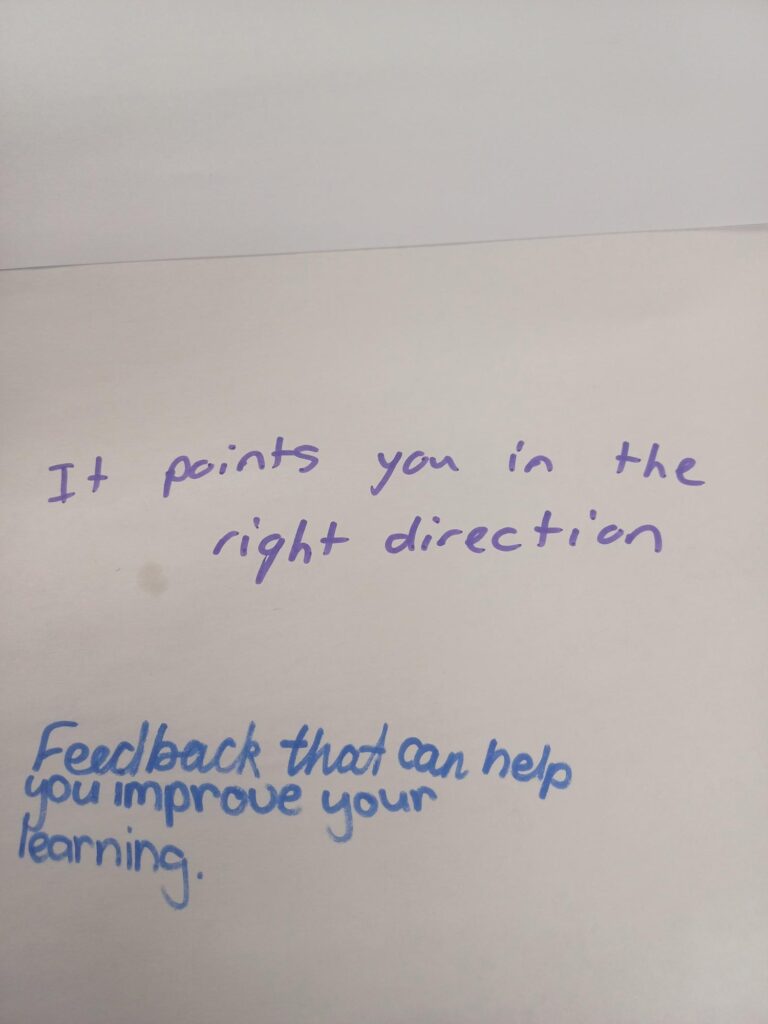 It points you in the
right direction
Feedback that can help
you improve your
learning.